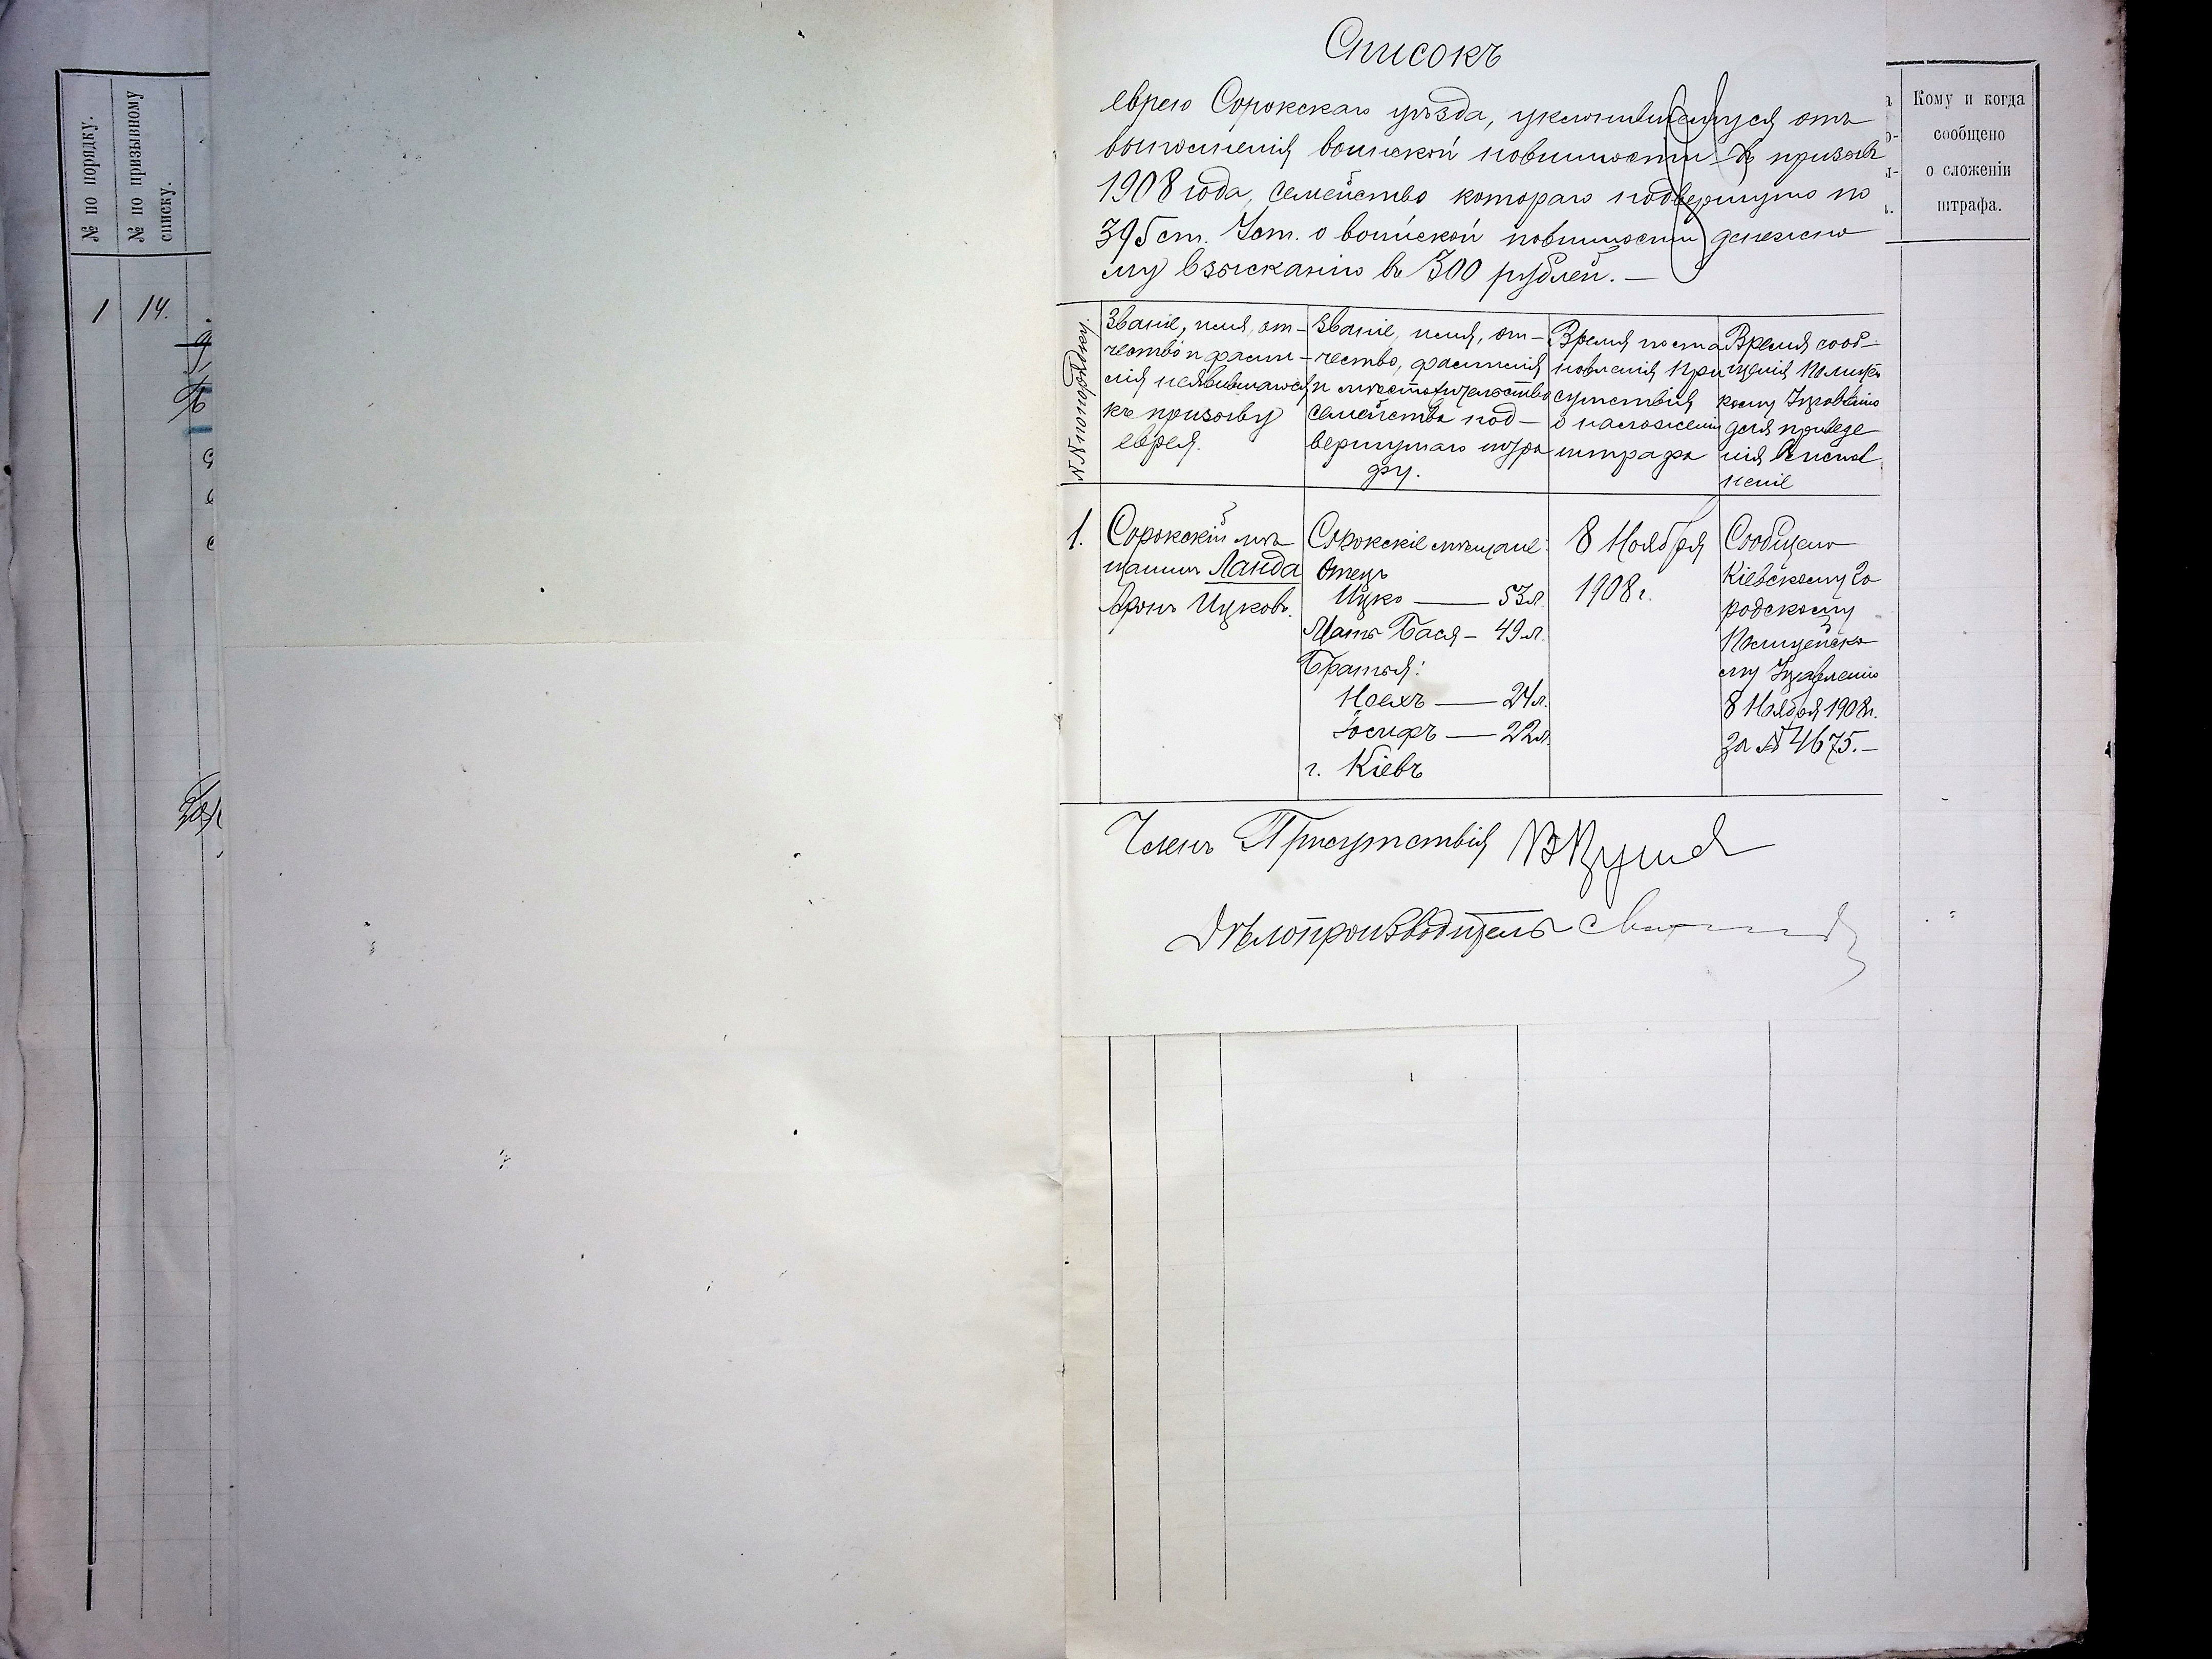 № по порядку.
№ по призывному
списку.
1
14.
Списокъ
еврею Сорокскаго уѣзда, уклонившемуся отъ
выполненія воинской повинности въ призывъ
1908 года, семейство котораго подвергнуто по
395 ст. Уст. о воинской повинности денежно
му взысканію въ 300 рублей. —
№№ по порядку.
Званіе, имя, от-
чество и фами-
лія неявившагося
къ призыву
еврея.
Званіе, имя, от-
чество, фамилія
и мѣстожительство
семейства под-
вергнутаго штра
фу.
Время поста
новленія При
сутствія
о наложеніи
штрафа
Время сооб-
щенія Полицей
скому Управленію
для приведе
нія въ испол
неніе
1.
Сорокскій мѣ
щанинъ Ланда
Аронъ Ицковъ.
Сорокскіе мѣщане:
Отецъ
Ицко — 53 л.
Мать Бася — 49 л.
Братья:
Ноехъ — 24 л.
Іосифъ — 22 л.
г. Кіевъ
8 Ноября
1908 г.
Сообщено
Кіевскому Го
родскому
Полицейско
му Управленію
8 Ноября 1908 г.
за № 4675. —
Членъ Присутствія
Дѣлопроизводитель
Кому и когда
сообщено
о сложеніи
штрафа.